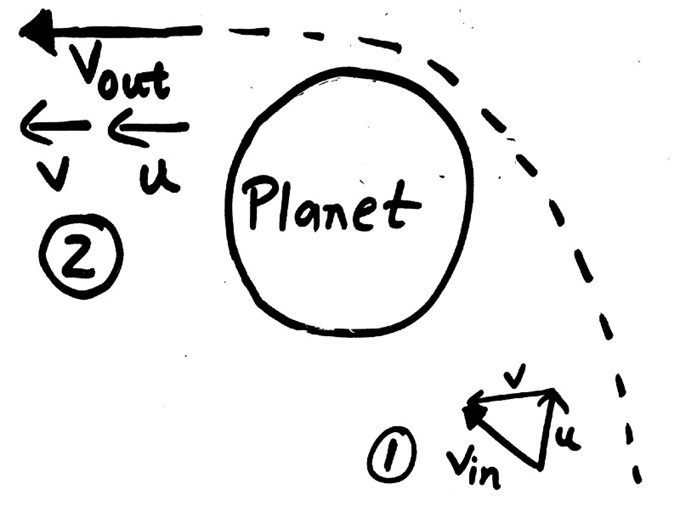 Vout
v u
Planet
2
v
u
1
Vin